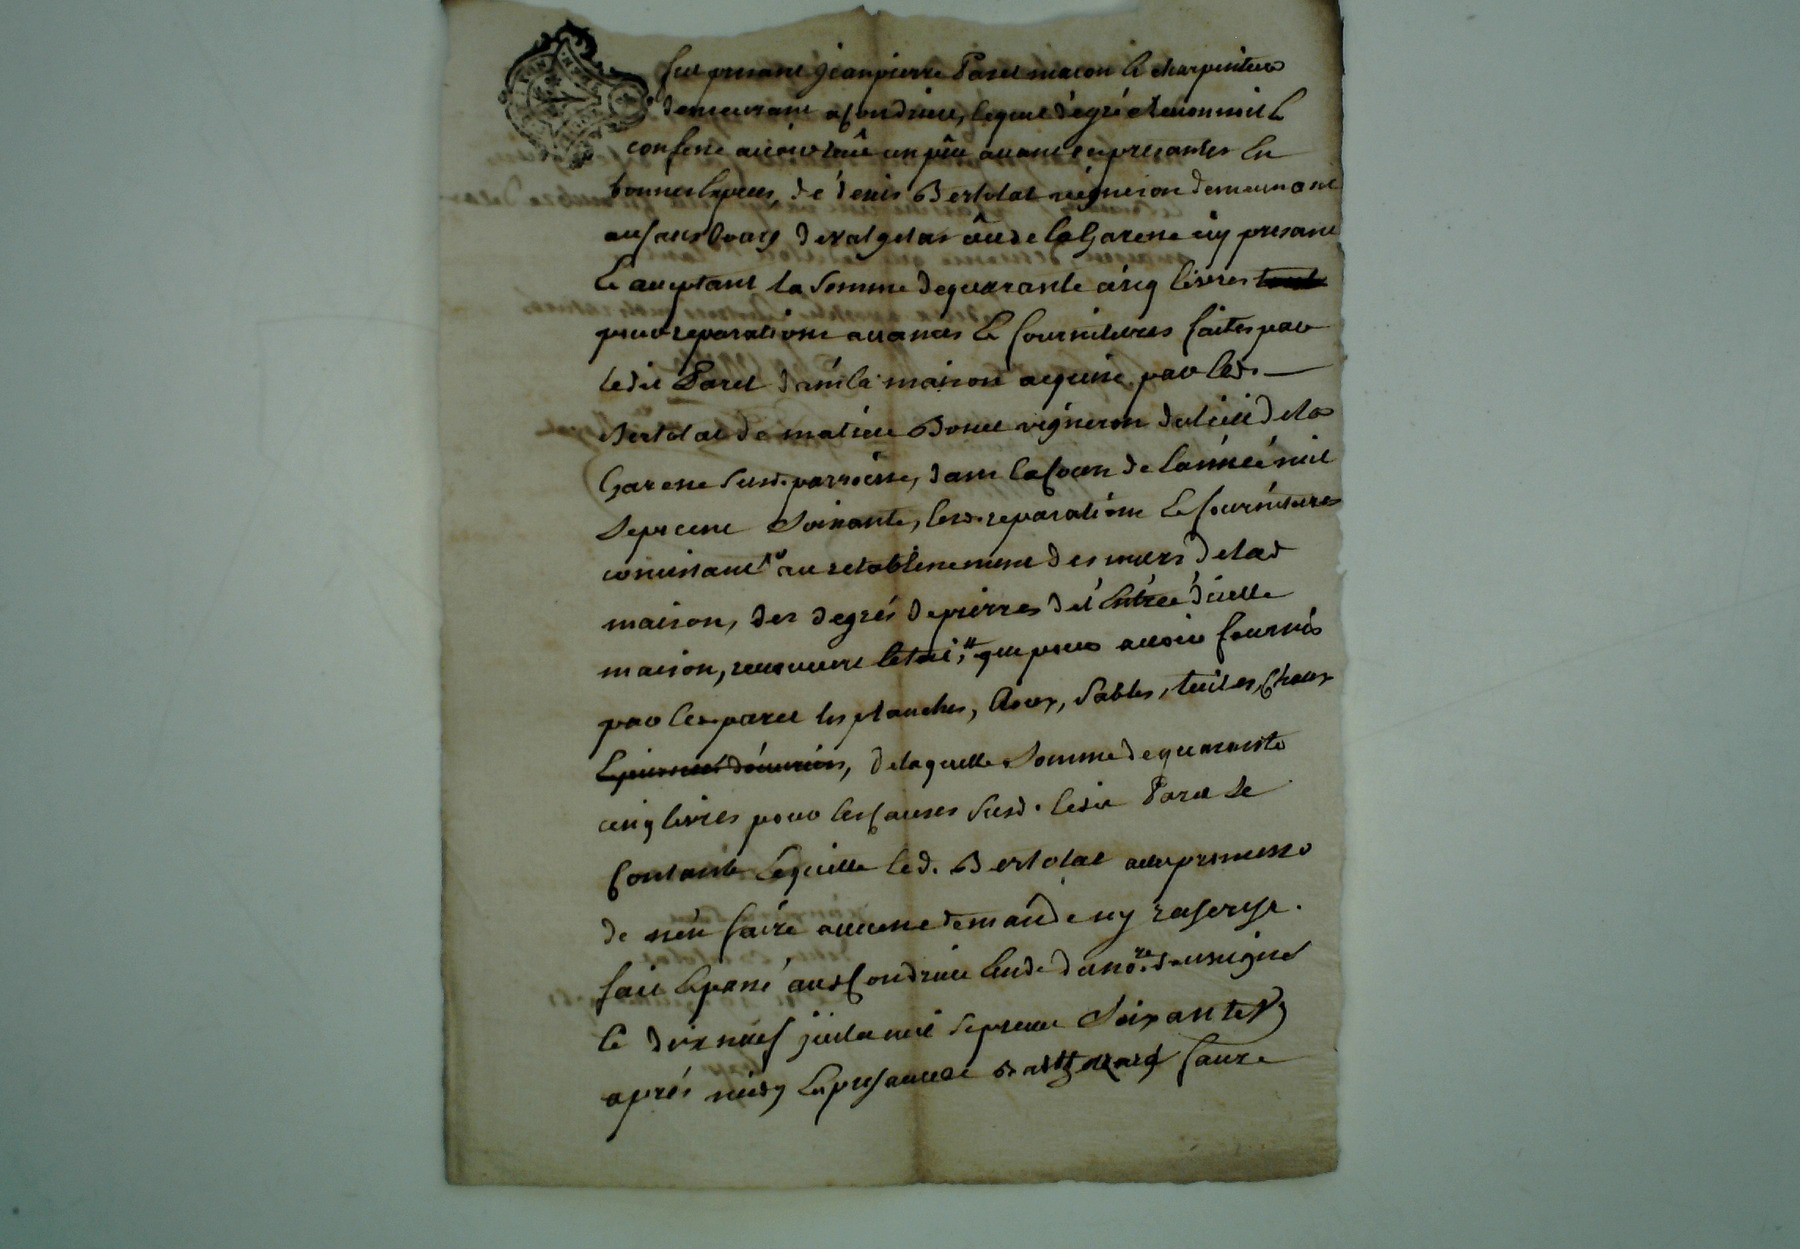 fut presant Jean pierre Paret macon & charpentier
demeurant a Condrieu, lequel de gré
confesse avoir un peu avant ces presantes en
bonnes especes, de denis Bertolat vigneron demeurant
au de la Garene icy presant
& aceptant la somme de quarante cinq livres
pour reparations avances & fournitures faites par
ledit Paret dans la maison acquise par led.
Bertolat de matieu Bonet vigneron dela
Garene susd. parroisse, dans le cour de lannée mil
sept cent soixante, lesd. reparations & fournitures
consistant au retablissement des murs de lad
maison, des degrés de pierres de l'entrée d'icelle
maison, que pour avoir fournis
par led. paret les planches, sables, tuiles, chaux
de laquelle somme de quarante
cinq livres pour les causes susd. ledit Paret se
contante & quitte led. Bertolat avec promesse
de n'en faire aucune demande ny recherche.
fait & passé aud Condrieu etude du nore. soussigné
le dix neuf mil sept cent soixante
après midy en presance de faure